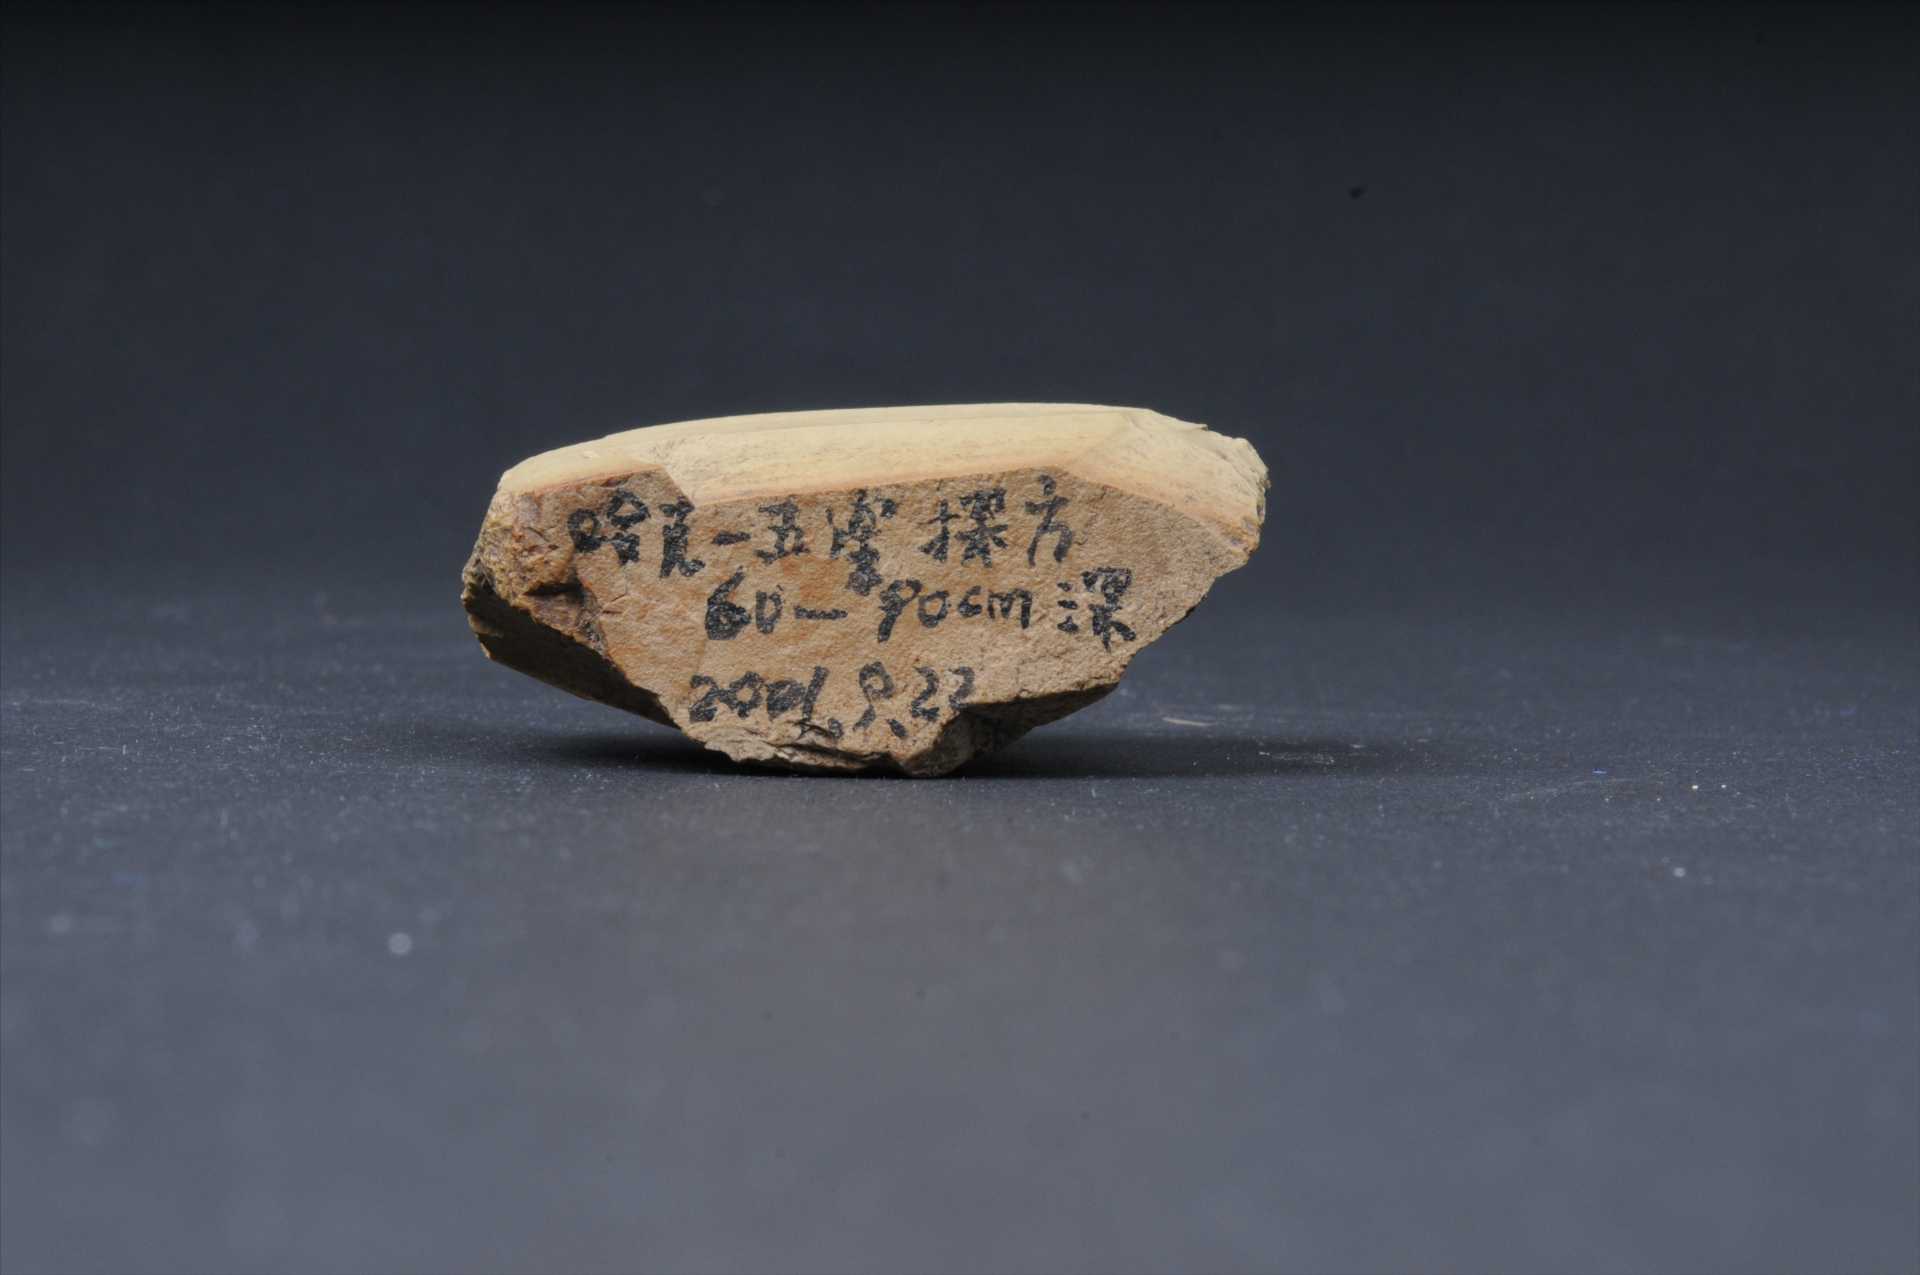 哈克一五号探方
60-90cm深
2001.9.22